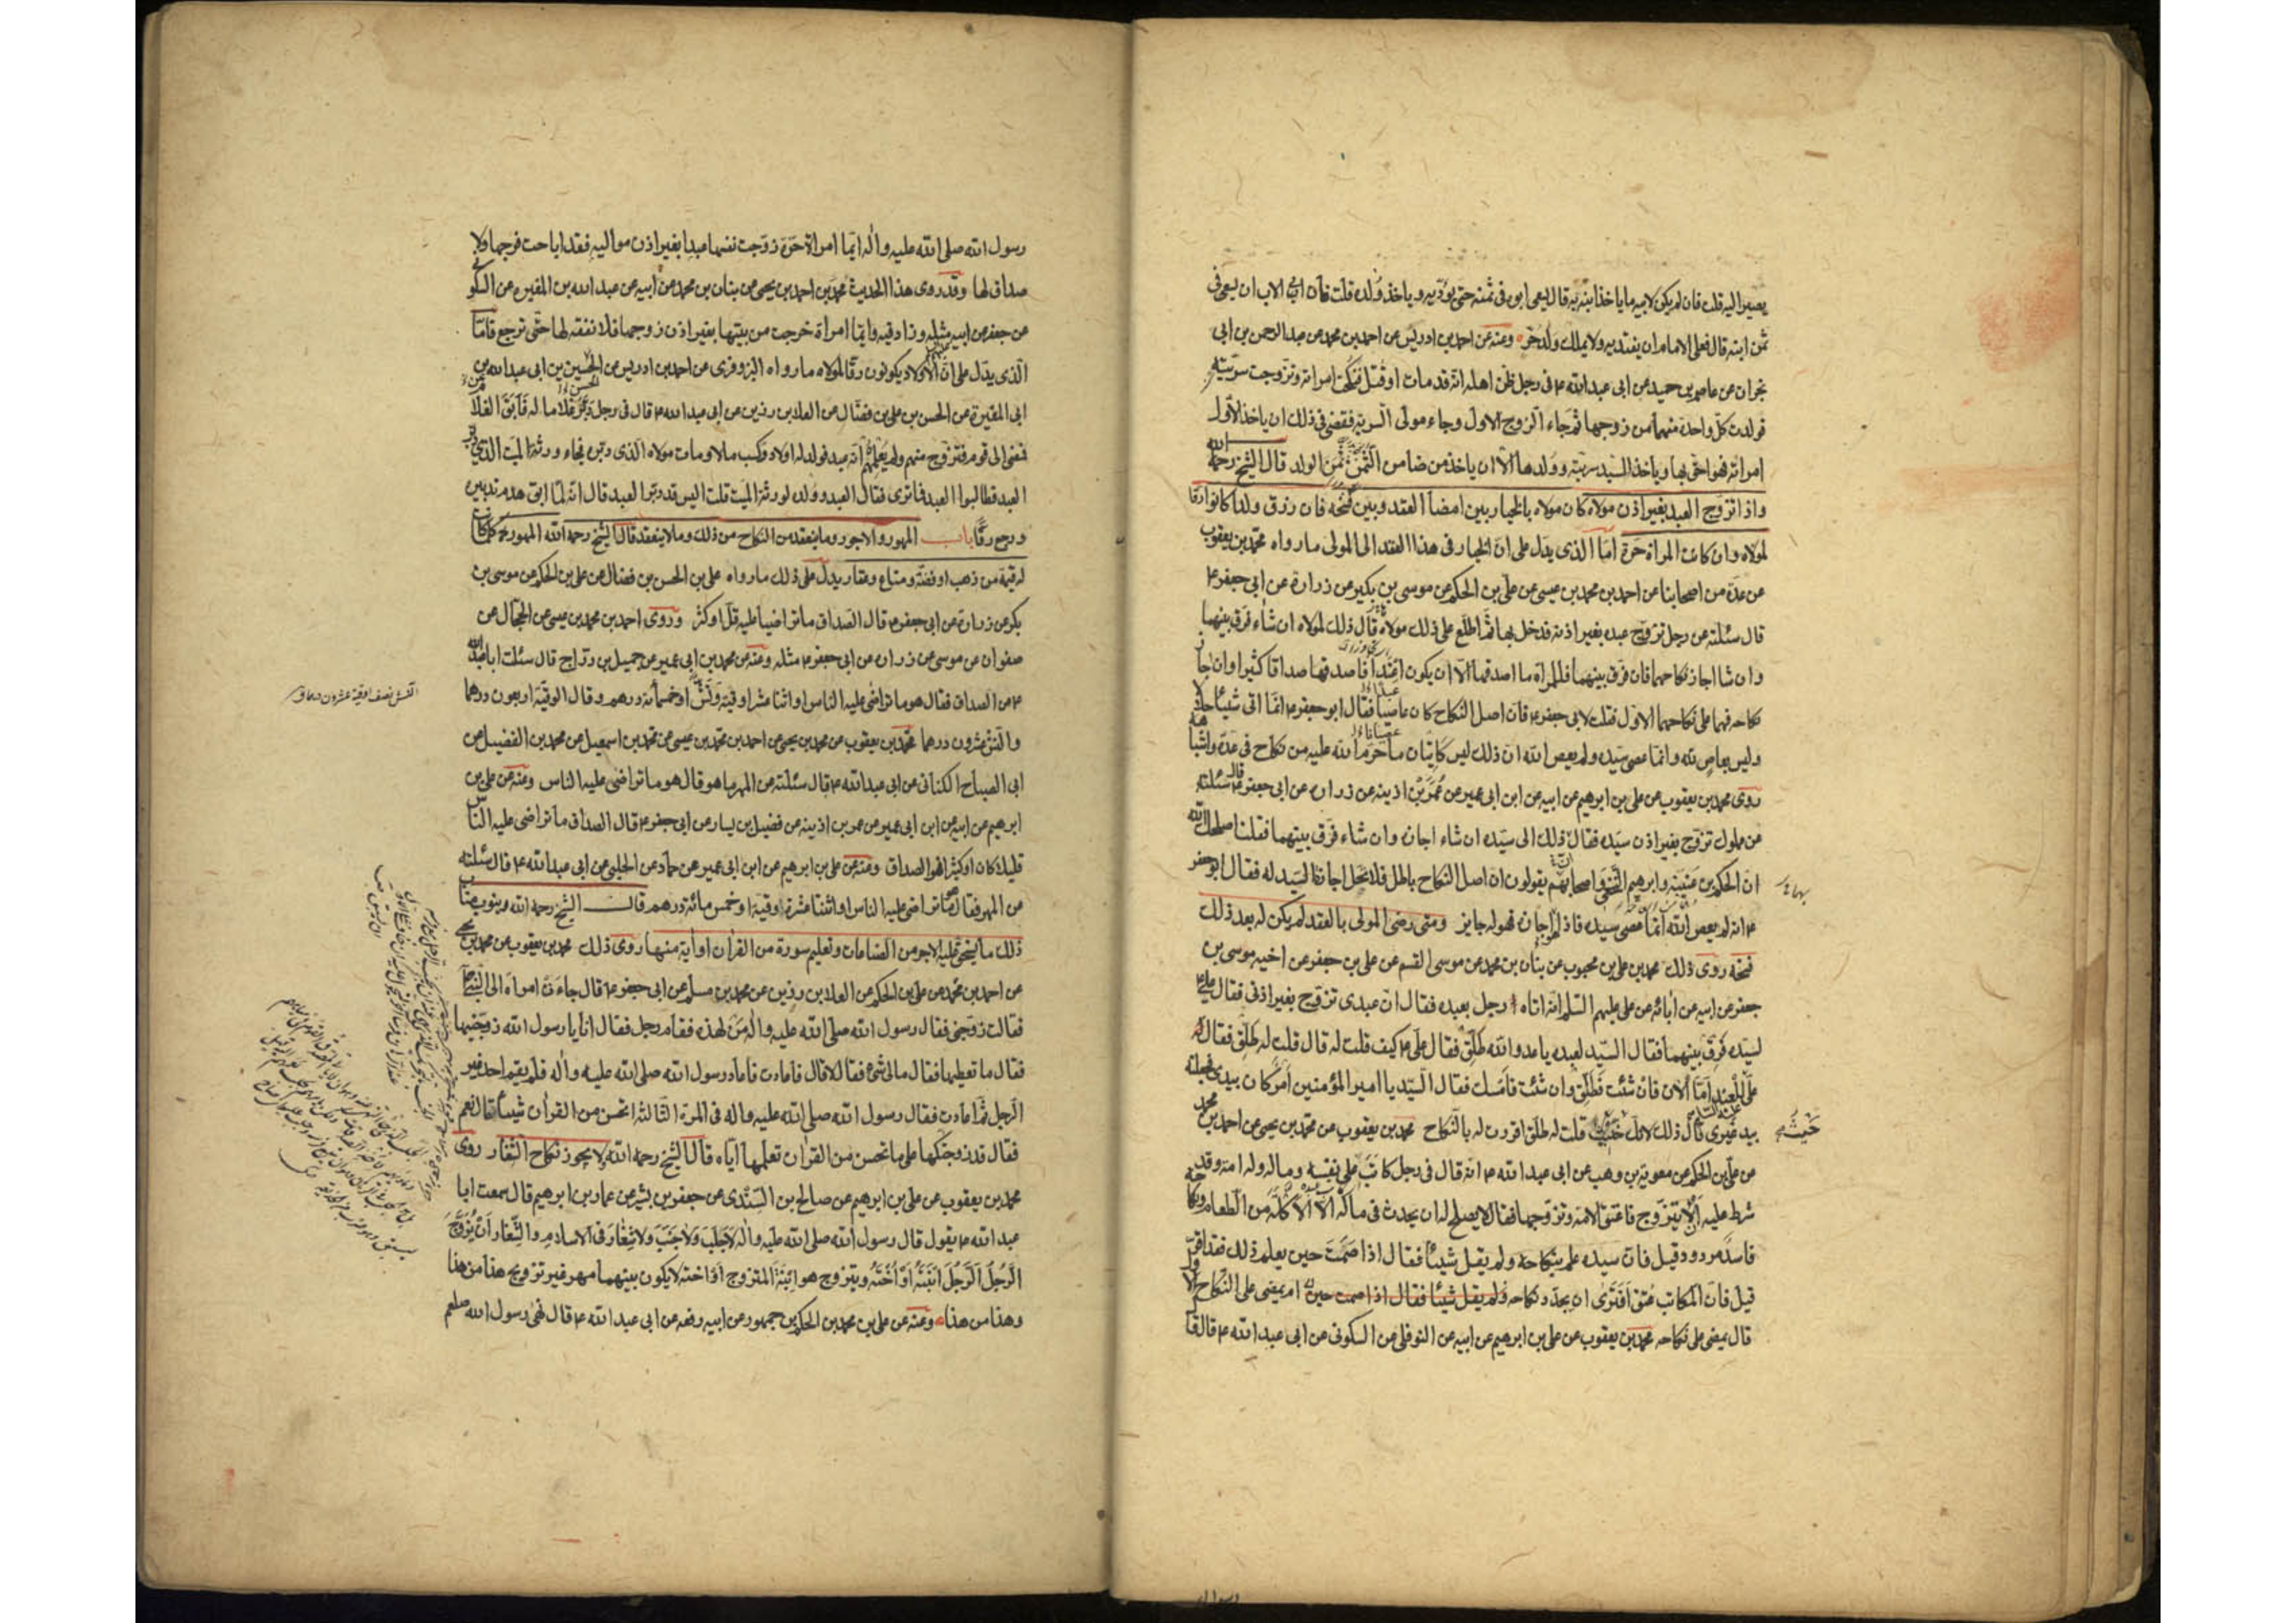 يصير اليه قلت فان لم يكن لابيه ما ياخذ ابنه به قال يسعى ابوه فى ثمنه حتى يؤديه وياخذ ولده قلت فان ابى الاب ان يسعى فى
ثمن ابنه قال فعلى الامام ان يفتديه ولا يملك ولد حر وعنه عن احمد بن ادريس عن احمد بن محمد عن عبد الرحمن بن ابى
نجران عن عاصم بن حميد عن ابى عبد الله ع فى رجل ظن اهله انه قد مات او قتل فنكحت امراته وتزوجت سريته
فولدت كل واحدة منهما من زوجها ثم جاء الزوج الاول وجاء مولى السرية فقضى فى ذلك ان ياخذ الاول
امراته فهو احق بها وياخذ السيد سريته وولدها الا ان ياخذ من ضامن الثمن ثمن الولد قال الشيخ رحمه الله
واذا تزوج العبد بغير اذن مولاه كان مولاه بالخيار بين امضا العقد وبين فسخه فان رزق ولدا كانوا رقا
لمولاه وان كانت المراة حرة اما الذى يدل على ان الخيار فى هذا العقد الى المولى ما رواه محمد بن يعقوب
عن عدة من اصحابنا عن احمد بن محمد بن عيسى عن على بن الحكم عن موسى بن بكير عن زرارة عن ابى جعفر ع
قال سئلته عن رجل تزوج عبده بغير اذنه فدخل بها ثم اطلع على ذلك مولاه قال ذلك لمولاه ان شاء فرق بينهما
وان شا اجاز نكاحهما فان فرق بينهما فللمراة ما اصدقها الا ان يكون اعتدا فاصدقها صداقا كثيرا وان اجاز
نكاحه فهما على نكاحهما الاول فقلت لابى جعفر ع فان اصل النكاح كان عاصيا فقال ابو جعفر ع انما اتى شيئا حلالا
وليس بعاص لله وانما عصى سيده ولم يعص الله ان ذلك ليس كاتيان ما حرم الله عليه من نكاح فى عدة واشباهه
روى محمد بن يعقوب عن على بن ابرهيم عن ابيه عن ابن ابى عمير عن عمر بن اذينه عن زرارة عن ابى جعفر ع قال سئلته
عن مملوك تزوج بغير اذن سيده فقال ذلك الى سيده ان شاء اجازه وان شاء فرق بينهما فقلنا اصلحك الله
ان الحكم بن عتيبة وابرهيم النخعى واصحابهم يقولون ان اصل النكاح باطل فلا تحل اجازة السيد له فقال ابو جعفر
ع انه لم يعص الله انما عصى سيده فاذا اجازه فهو له جايز ومتى رضى المولى بالعقد لم يكن له بعد ذلك
فسخه روى ذلك محمد بن على بن محبوب عن بنان بن محمد عن موسى القسم عن على بن جعفر عن اخيه موسى بن
جعفر عن ابيه عن ابائه عن على عليهم السلم انه اتاه رجل بعبده فقال ان عبدى تزوج بغير اذنى فقال على ع
لسيده فرق بينهما فقال السيد لعبده يا عدو الله طلق فقال على ع كيف قلت له قال قلت له طلق فقال
على للعبد اما الان فان شئت فطلق وان شئت فامسك فقال السيد يا امير المؤمنين امر كان بيدى فجعلته
بيد غيرى قال ذلك لانك حيث قلت له طلق اقررت له بالنكاح محمد بن يعقوب عن محمد بن يحيى عن احمد بن محمد
عن على بن الحكم عن معوية بن وهب عن ابى عبد الله ع انه قال فى رجل كاتب على نفسه وماله وله امة وقد
شرط عليه الا يتزوج فاعتق الامة وتزوجها فقال لا يصلح له ان يحدث فى ماله الا الاكلة من الطعام ونكاحه
فاسد مردود قيل فان سيده علم بنكاحه ولم يقل شيئا فقال اذا صمت حين يعلم ذلك فقد اقر
قيل فان المكاتب عتق افترى ان يجدد نكاحه ولم يقل شيئا فقال اذا صمت حين ام يمضى على النكاح الاول
قال يمضى على نكاحه محمد بن يعقوب عن على بن ابرهيم عن ابيه عن النوفلى عن السكونى عن ابى عبد الله ع قال قال
رسول الله صلى الله عليه واله ايما امراة حرة زوجت نفسها عبدا بغير اذن مواليه فقد اباحت فرجها ولا
صداق لها وقد روى هذا الحديث محمد بن احمد بن يحيى عن بنان بن محمد عن ابيه عن عبد الله بن المغيره عن السكونى
عن جعفر عن ابيه مثله وزاد فيه وايما امراة خرجت من بيتها بغير اذن زوجها فلا نفقه لها حتى ترجع فاما
الذى يدل على ان الاولاد يكونون رقا لمولاه ما رواه البزوفرى عن احمد بن ادريس عن الحسين بن ابى عبد الله بن
ابى المغيرة عن الحسن بن على بن فضال عن العلا بن رزين عن ابى عبد الله ع قال فى رجل دبر غلاما له فابق الغلام
فمضى الى قوم فتزوج منهم ولم يعلمهم انه عبد فولد له اولاد وكسب مالا ومات مولاه الذى دبره فجاء ورثة الميت الذى دبر
العبد فطالبوا العبد فما ترى فقال العبد وولده لورثة الميت قلت اليس قد دبر العبد قال انه لما ابق هدم تدبيره
ورجع رقا باب المهور والاجور وما ينعقد من النكاح من ذلك وما لا ينعقد قال الشيخ رحمه الله المهور كلما كان
له قيمة من ذهب او فضة ومتاع وعقار يدل على ذلك ما رواه على بن الحسن بن فضال عن على بن الحكم عن موسى بن
بكر عن زرارة عن ابى جعفر ع قال الصداق ما تراضيا عليه قل او كثر وروى احمد بن محمد بن عيسى عن الحجال عن
صفوان عن موسى عن زرارة عن ابى جعفر ع مثله وعنه عن محمد بن ابى عمير عن جميل بن دراج قال سئلت ابا عبد الله
ع عن الصداق فقال هو ما تراضى عليه الناس او اثنا عشر اوقية ونش او خمسمائة درهم وقال الوقية اربعون درهما
والنش عشرون درهما محمد بن يعقوب عن محمد بن يحيى عن احمد بن محمد بن عيسى عن محمد بن اسمعيل عن محمد بن الفضيل عن
ابى الصباح الكنانى عن ابى عبد الله ع قال سئلته عن المهر ما هو قال هو ما تراضى عليه الناس وعنه عن على بن
ابرهيم عن ابيه عن ابن ابى عمير عن عمر بن اذينه عن فضيل بن يسار عن ابى جعفر ع قال الصداق ما تراضى عليه الناس
قليلا كان او كثيرا فهو الصداق وعنه عن على بن ابرهيم عن ابن ابى عمير عن حماد عن الحلبى عن ابى عبد الله ع قال سئلته
عن المهر فقال ما تراضى عليه الناس او اثنتا عشرة اوقية او خمس مائة درهم قال الشيخ رحمه الله وينوب مناب
ذلك ما يستحق عليه الاجر من الصناعات وتعليم سورة من القران او اية منها روى ذلك محمد بن يعقوب عن محمد بن يحيى
عن احمد بن محمد عن على بن الحكم عن العلا بن رزين عن محمد بن مسلم عن ابى جعفر ع قال جاءت امراة الى النبى
فقالت زوجنى فقال رسول الله صلى الله عليه واله من لهذه فقام رجل فقال انا يا رسول الله زوجنيها
فقال ما تعطيها فقال مالى شئ فقال لا قال فاعادت فاعاد رسول الله صلى الله عليه واله فلم يقم احد غير
الرجل ثم اعادت فقال رسول الله صلى الله عليه واله فى المرة الثالثة اتحسن من القران شيئا قال نعم
فقال قد زوجتكها على ما تحسن من القران تعلمها اياه قال الشيخ رحمه الله ولا يجوز نكاح الشغار روى
محمد بن يعقوب عن على بن ابرهيم عن صالح بن السندى عن جعفر بن بشير عن عمار بن ابرهيم قال سمعت ابا
عبد الله ع يقول قال رسول الله صلى الله عليه واله لا جلب ولا جنب ولا شغار فى الاسلام والشغار ان يزوج
الرجل الرجل ابنته او اخته ويتزوج هو ابنة المتزوج او اخته لا يكون بينهما مهر غير تزويج هذا من هذا
وهذا من هذا وعنه عن على بن محمد بن الحكم بن جمهور عن ابيه رفعه عن ابى عبد الله ع قال نهى رسول الله صلعم
النش نصف اوقية عشرون درهما